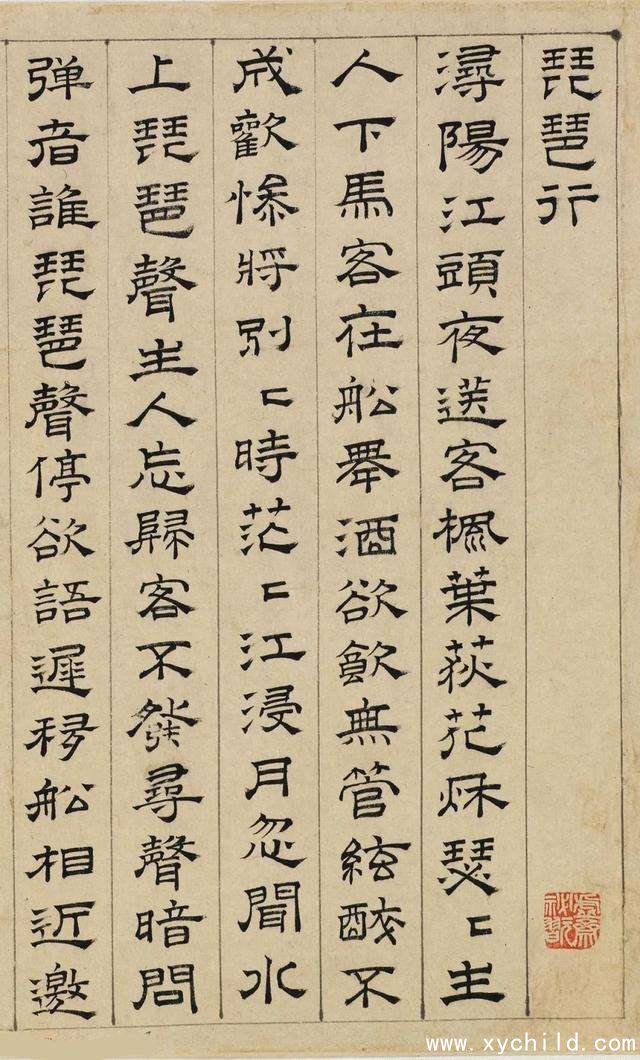 琵琶行
潯陽江頭夜送客楓葉荻花秋瑟〻主
人下馬客在舩舉酒欲飲無管絃醉不
成歡慘將別〻時茫〻江浸月忽聞水
上琵琶聲主人忘歸客不發尋聲暗問
弹者誰琵琶聲停欲語遲移舩相近邀
www.xychild.com